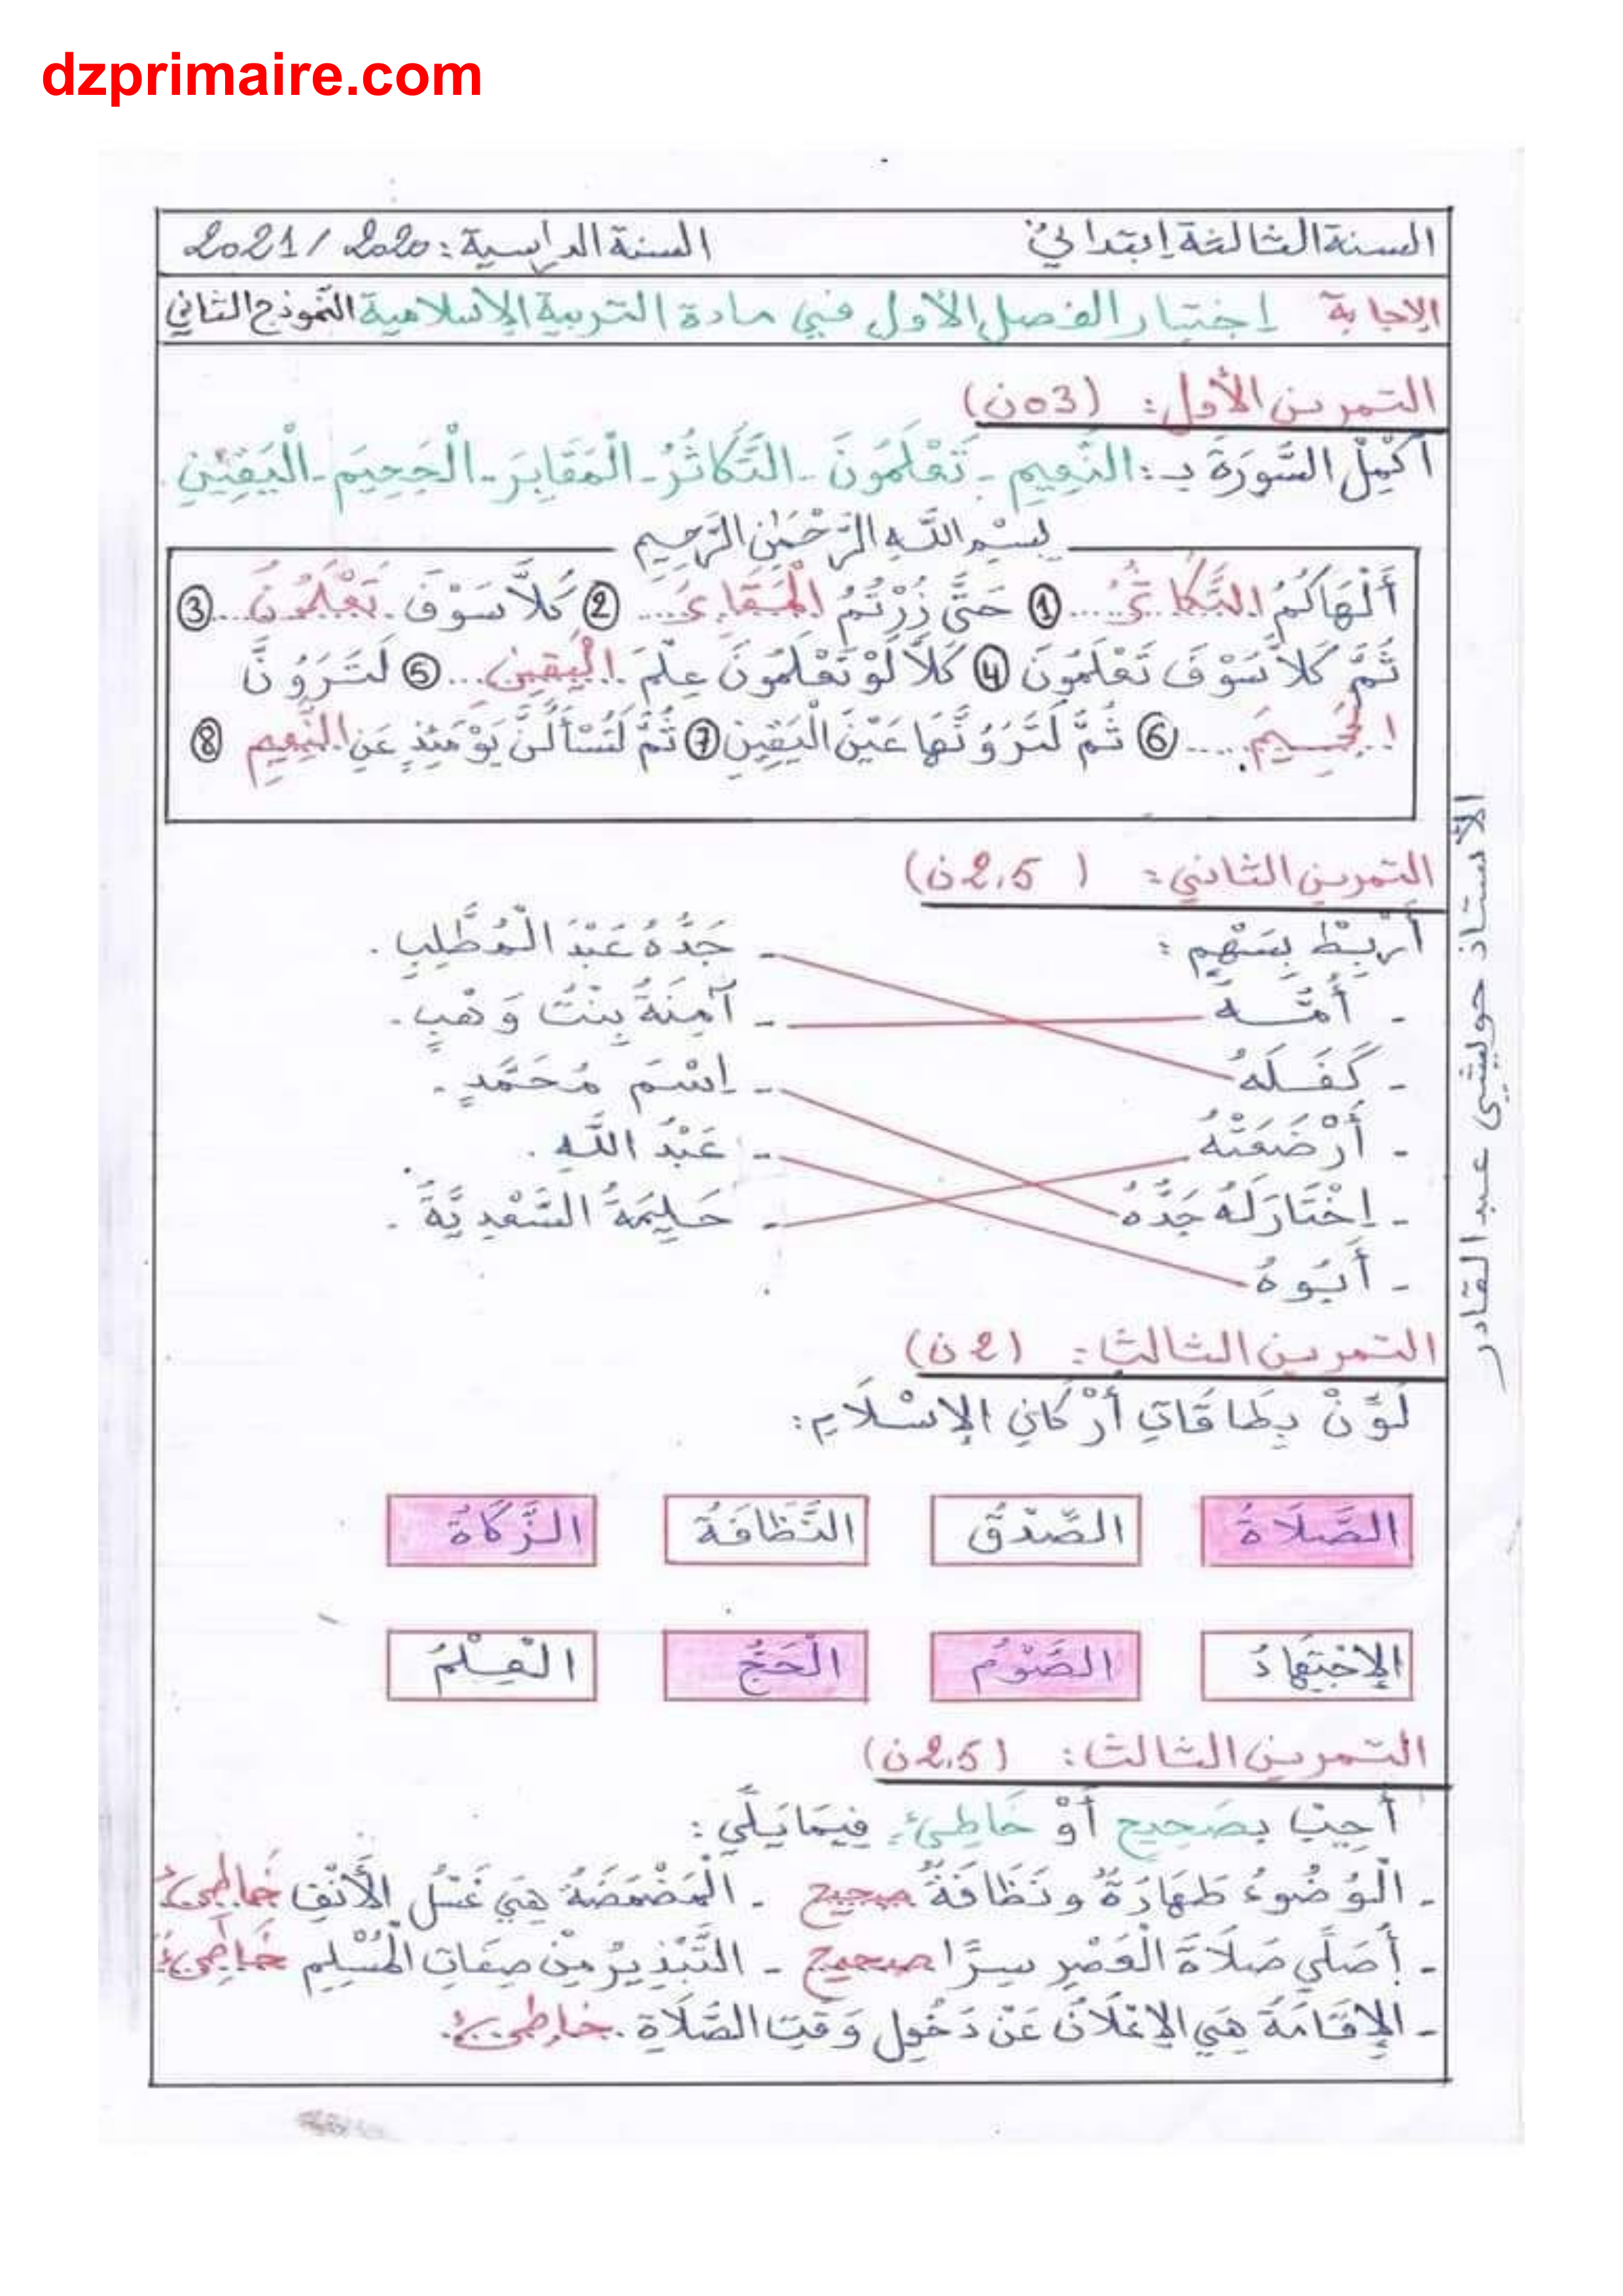 dzprimaire.com
السنة الثالثة إبتدائي السنة الدراسية: 2020 / 2021
الإجابة إختبار الفصل الأول في مادة التربية الإسلامية النموذج الثاني
التمرين الأول: (03ن)
أَكْمِلُ السُّورَةَ بـ: النَّعِيمِ - تَعْلَمُونَ - التَّكَاثُرُ - الْمَقَابِرَ - الْجَحِيمَ - الْيَقِينِ
بِسْمِ اللَّهِ الرَّحْمَنِ الرَّحِيمِ
أَلْهَاكُمُ التَّكَاثُرُ..... ① حَتَّى زُرْتُمُ الْمَقَابِرَ.... ② كَلاَّ سَوْفَ تَعْلَمُونَ.... ③
ثُمَّ كَلاَّ سَوْفَ تَعْلَمُونَ ④ كَلاَّ لَوْ تَعْلَمُونَ عِلْمَ الْيَقِينِ... ⑤ لَتَرَوُنَّ
الْجَحِيمَ..... ⑥ ثُمَّ لَتَرَوُنَّهَا عَيْنَ الْيَقِينِ ⑦ ثُمَّ لَتُسْأَلُنَّ يَوْمَئِذٍ عَنِ النَّعِيمِ ⑧
التمرين الثاني: (2,5ن)
أَرْبِطْ بِسَهْمٍ:
- أُمُّهُ - آمِنَةُ بِنْتُ وَهْبٍ.
- كَفَلَهُ - جَدُّهُ عَبْدَ الْمُطَّلِبِ.
- أَرْضَعَتْهُ - حَلِيمَةُ السَّعْدِيَّةُ.
- اِخْتَارَ لَهُ جَدُّهُ - اِسْمَ مُحَمَّدٍ.
- أَبُوهُ - عَبْدُ اللَّهِ.
التمرين الثالث: (2ن)
لَوِّنْ بِطَاقَاتِ أَرْكَانِ الإِسْلَامِ:
الصَّلَاةُ الصِّدْقُ النَّظَافَةُ الزَّكَاةُ
الإِجْتِهَادُ الصَّوْمُ الْحَجُّ الْعِلْمُ
التمرين الثالث: (2,5ن)
أَجِبْ بِصَحِيح أَوْ خَاطِئ فِيمَا يَلِي:
- الْوُضُوءُ طَهَارَةٌ وَنَظَافَةٌ صحيح - الْمَضْمَضَةُ هِيَ غَسْلُ الأَنْفِ خَاطِئ
- أُصَلِّي صَلَاةَ الْعَصْرِ سِرًّا صحيح - التَّبْذِيرُ مِنْ صِفَاتِ الْمُسْلِمِ خَاطِئ
- الإِقَامَةُ هِيَ الإِعْلَانُ عَنْ دُخُولِ وَقْتِ الصَّلَاةِ. خاطئ.
الأستاذ حوليشي عبد القادر